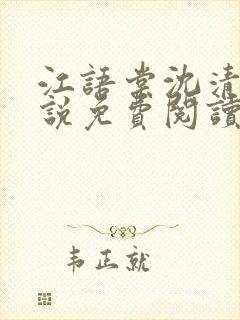 江語棠沈清
說免費閱讀
韦正就